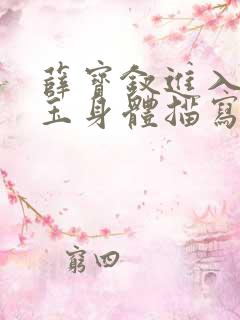 薛寶釵進入
玉身體描寫
窮四